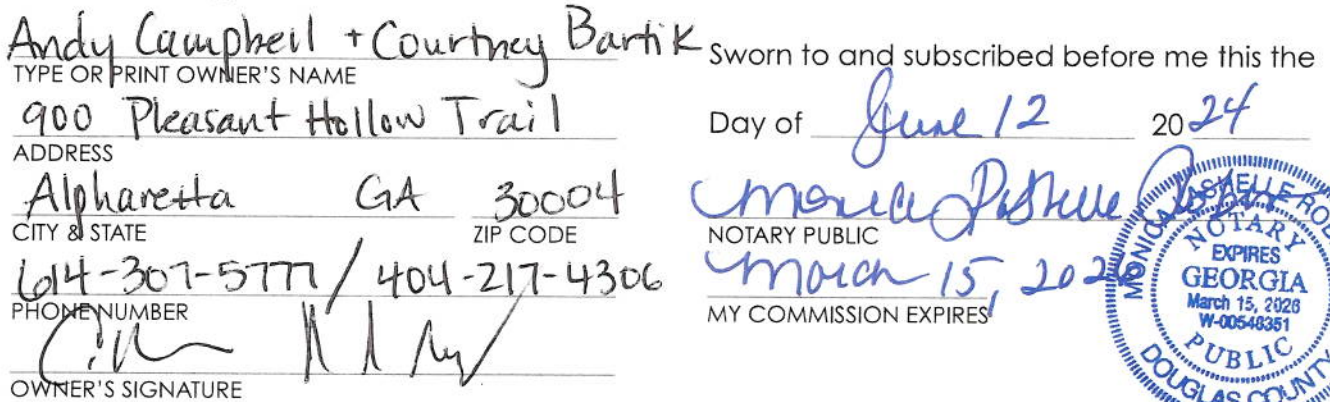 Andy Campbell + Courtney Bartik
TYPE OR PRINT OWNER'S NAME
900 Pleasant Hollow Trail
ADDRESS
Alpharetta GA 30004
CITY & STATE ZIP CODE
614-307-5777 / 404-217-4306
PHONE NUMBER
OWNER'S SIGNATURE
Sworn to and subscribed before me this the
Day of June 12 20 24
Monica
NOTARY PUBLIC
March 15, 2026
MY COMMISSION EXPIRES
NOTARY
EXPIRES
GEORGIA
March 15, 2026
W-00548351
PUBLIC
DOUGLAS COUNTY